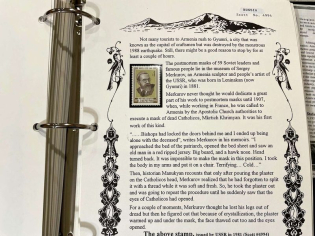 Not many tourists to Armenia rush to Gyumri, a city that was
known as the capital of craftsmen but was destroyed by the monstrous
1988 earthquake. Still, there might be a good reason to stay for at
least a couple of hours.
The postmortem masks of 59 Soviet leaders and
famous people lie in the museum of Sergey
Merkurov, an Armenia sculptor and people's artist of
the USSR, who was born in Leninakan (now
Gyumri) in 1881.
Merkurov never thought he would dedicate a great
part of his work to postmortem masks until 1907,
when, while working in France, he was called to
Armenia by the Apostolic Church authorities to
execute a mask of dead Catholicos, Mkrtich Khrimyan. It was his first
work of this kind.
"..... Bishops had locked the doors behind me and I ended up being
alone with the deceased", writes Merkurov in his memoirs. "I
approached the bed of the patriarch, opened the bed sheet and saw an
old man in a red ripped jersey. Big beard, and a hawk nose. Head
turned back. It was impossible to make the mask in this position. I took
the body in my arms and put it on a chair. Terrifying... Cold..."
Then, historian Manukyan recounts that only after pouring the plaster
on the Catholicos head, Merkurov realized that he had forgotten to split
it with a thread while it was soft and fresh. So, he took the plaster out
and was going to repeat the procedure until he suddenly saw that the
eyes of Catholicos had opened.
For a couple of moments, Merkurov thought he lost his legs out of
dread but then he figured out that because of crystallization, the plaster
warmed up and under the mask, the face thawed out too and the eyes
opened.
The above stamp, issued by USSR in 1981 (Scott #4994)